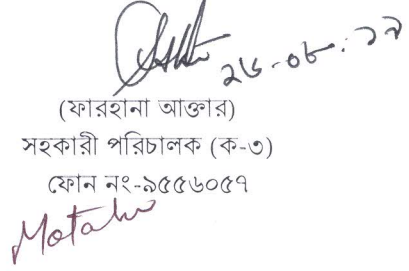 ২৬-০৮-১৯
(ফারহানা আক্তার)
সহকারী পরিচালক (ক-৩)
ফোন নং-৯৫৫৬০৫৭